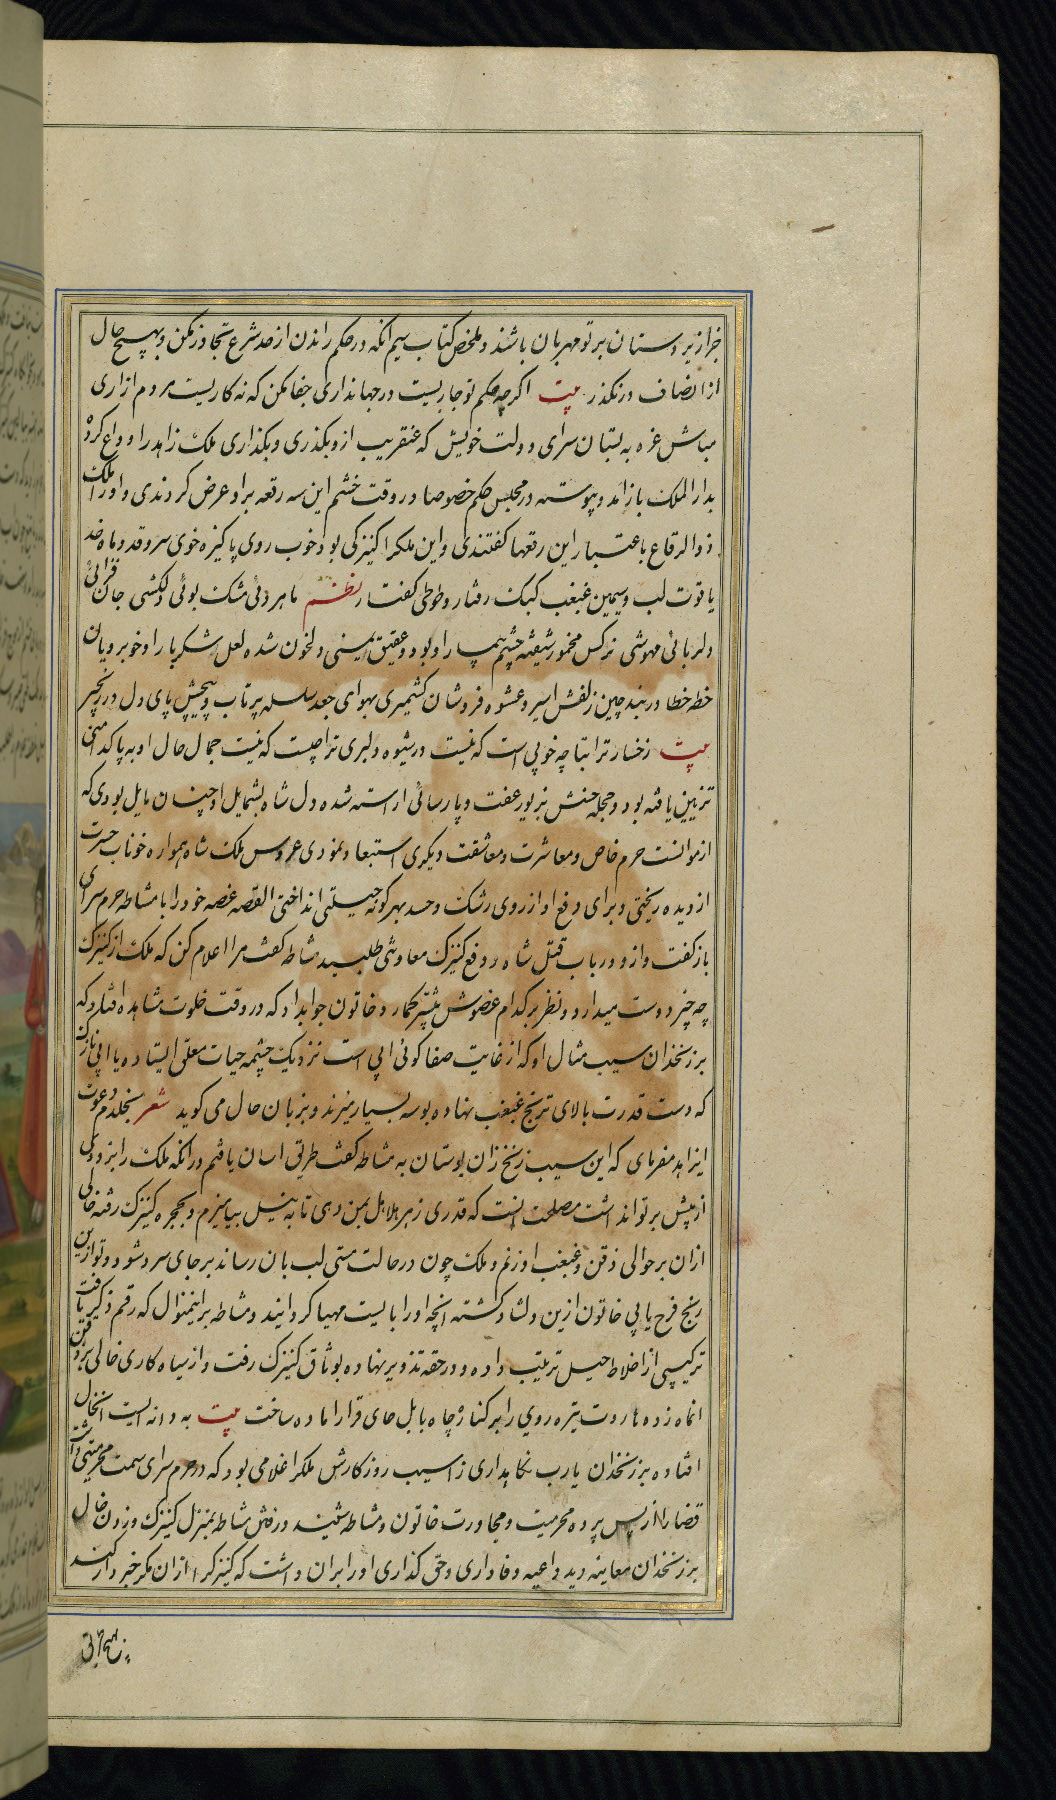 جز از زیردستان بر تو مهربان باشند و ملخص کتاب سیم آنکه در حکم راندن از حد شرع تجاوز مکن و بهیچ حال
از انصاف در نگذر بیت اگرچه حکم تو جاریست در جهانداری جفا مکن که نه کاریست مردم ازاری
مباش غره به بستان سرای و دولت خویش که عنقریب ازو بگذری و بگذاری ملک زاهد را وداع کرده
بدار الملک باز امد و پیوسته در مجلس حکم خصوصا در وقت خشم این سه رقعه بر او عرض کردندی و او را ملک
ذو الرقاع باعتبار این رقعها کفتندی و این ملک را کنیزکی بود خوب روی پاکیزه خوی سرو قد و ماه خد
یاقوت لب و سیمین غبغب کبک رفتار و طوطی کفتار نظم ماهروئی مشک بوئی دلکشی جان فزائی
دلربائی مهوشی نرکس مخمور شیفته چشم بیمار او بود و عقیق یمنی دلخون شده لعل شکربار او خوبرویان
خطه خطا در بند چین زلفش اسیر و عشوه فروشان کشمیری بهوای جعد سلسله پر تاب و پیچش پای دل در زنجیر
بیت رخسار ترا بتا چه خوبی است که نیست در شیوه دلبری ترا چیست که نیست جمال حال او به پاکدامنی
تزیین یافته بود و حجله حسنش بزیور عفت و پارسائی اراسته شده دل شاه بشمایل او چنان مایل بودی که
از موانست حرم خاص و معاشرت و معاشقت دیکری استبعاد نمودی عروس ملک شاه همواره خوناب حسرت
از دیده ریختی و برای دفع او از روی رشک و حسد بهر کونه حیلتی انداختی القصه غصه خود را با مشاطه حرم سرای
باز کفت و از و در باب قتل شاه و دفع کنیزک معاونتی طلبید مشاطه کفت مرا اعلام کن که ملک از کنیزک
چه چیز دوست میدارد و نظر بر کدام عضوش بیشتر کمارد خاتون جواب داد که در وقت خلوت مشاهده افتاد که
بر زنخدان سیب مثال او که از غایت صفا کوئی ابی است نزدیک چشمه حیات معلق ایستاده یا ابی نازک
که دست قدرت بالای ترنج غبغب نهاده بوسه بسیار میزند و بزبان حال می کوید شعر بخلدم دعوت
ای زاهد مفرمای که این سیب زنخ زان بوستان به مشاطه کفت طریقی اسان یافتم در آنکه ملک را بزودی
از پیش بر توان داشت مصلحت انست که قدری زهر هلاهل بمن دهی تا به نیل بیامیزم و بحجره کنیزک رفته خالی
از ان بر حوالی ذقن و غبغب او زنم و ملک چون در حالت مستی لب بان رساند بر جای سرد شود و تو ازین
رنج فرح یابی خاتون ازین دلشاد کشته انچه او را بایست مهیا کردانید و مشاطه بر اینمنوال که رقم ذکر یافت
ترکیبی از اخلاط حیل ترتیب داده و در حقه تزویر نهاده بوثاق کنیزک رفت و از سیاه کاری خالی بر ذقن
انماه زده هاروت تیره روی را بر کناره چاه بابل جای قرار اماده ساخت بیت به دانه ایست انخال
افتاده بر زنخدان یارب نکاهداری ز اسیب روزکارش ملک را غلامی بود که در حرم سرای سمت محرمیتی داشت
قضا را از پس پرده محرمیت و مجاورت خاتون و مشاطه شنید و رفتن مشاطه بمنزل کنیزک و زدن خال
بر زنخدان معاینه دید داعیه وفاداری و حق کذاری او را بران داشت که کنیزک را از ان مکر خبردار کند